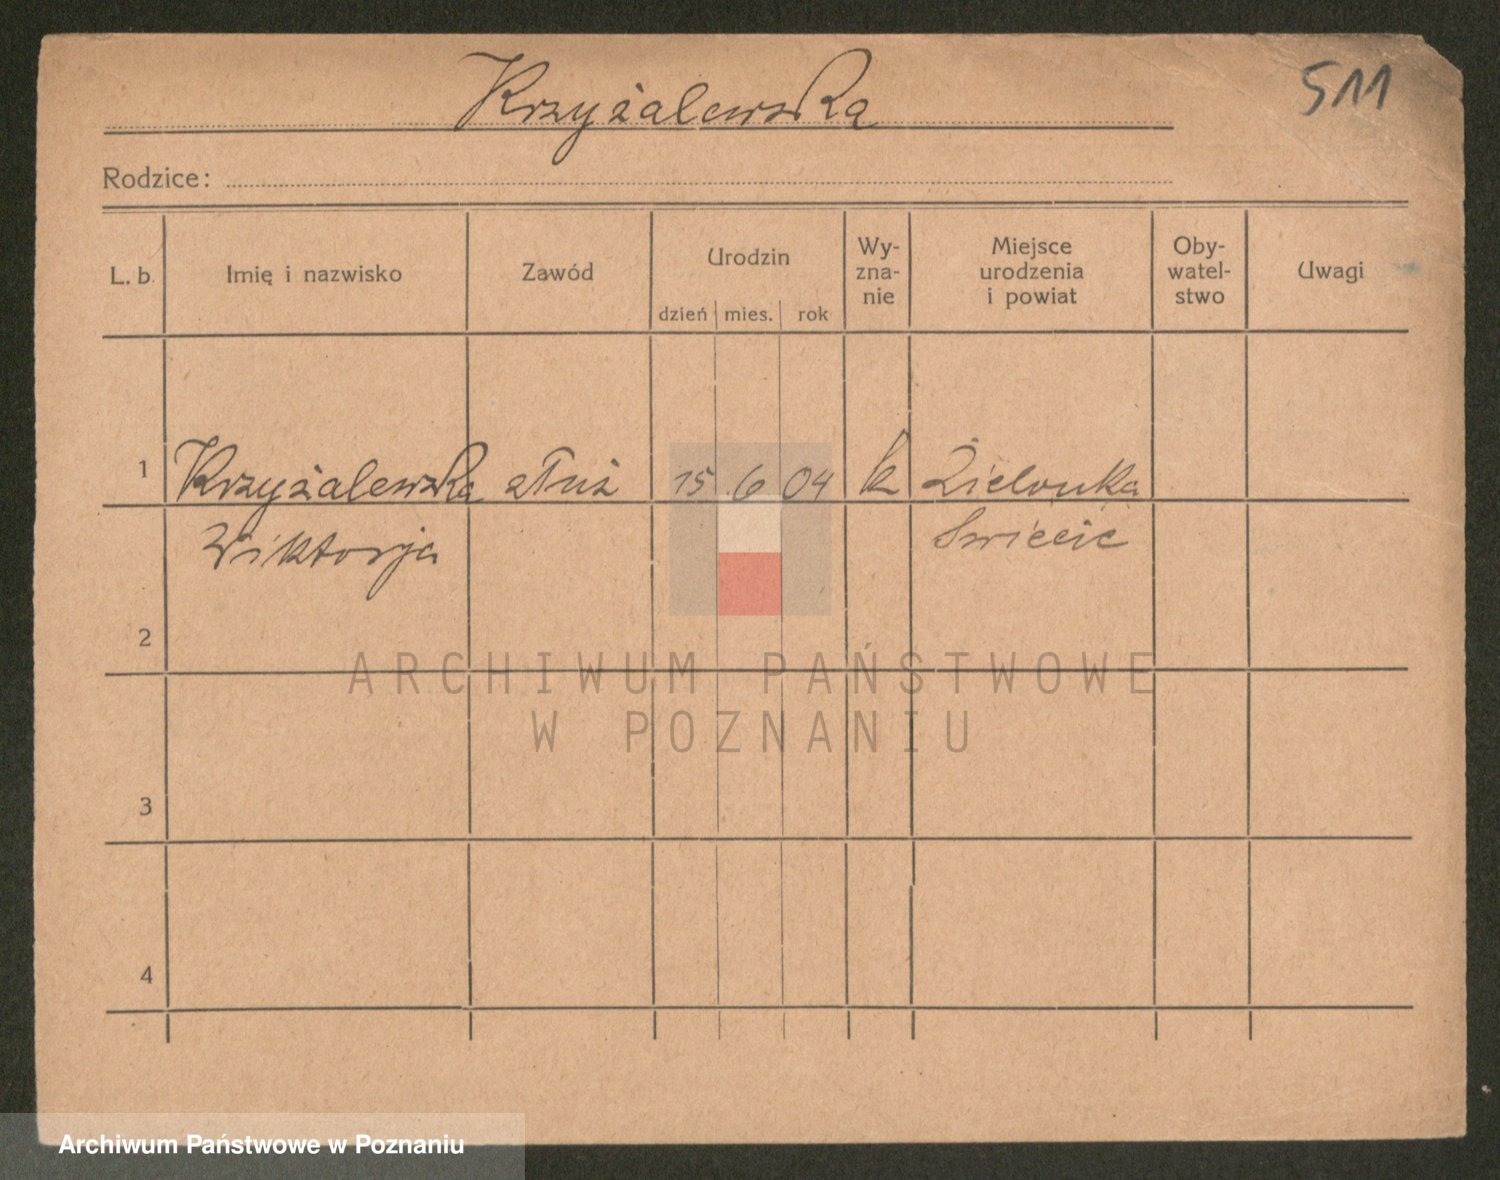 Krzyżalewska
511
Rodzice:
L. b.
Imię i nazwisko
Zawód
Urodzin
dzień mies. rok
Wy-
zna-
nie
Miejsce
urodzenia
i powiat
Oby-
watel-
stwo
Uwagi
1 Krzyżalewska służ 15 6 04 k Zielonka
Wiktorja Swiecie
2
3
4
ARCHIWUM PAŃSTWOWE
W POZNANIU
Archiwum Państwowe w Poznaniu